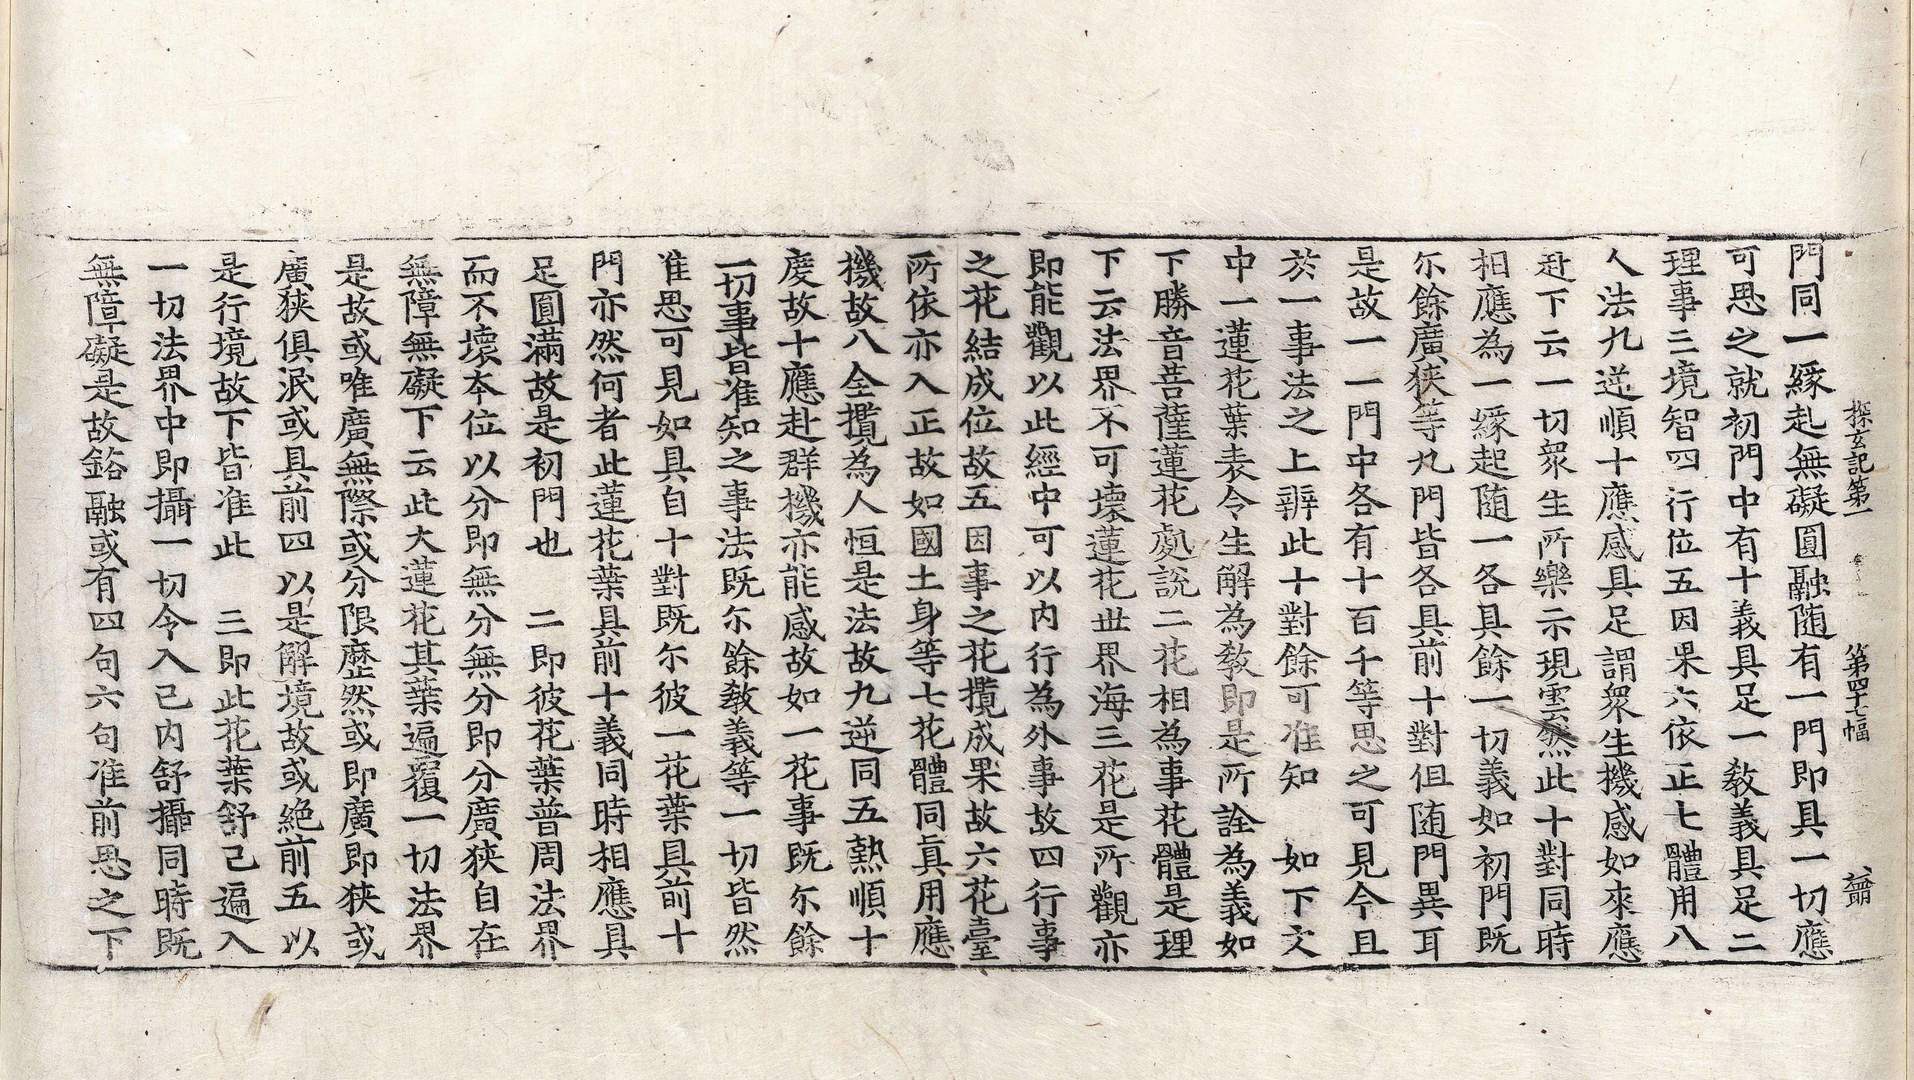 探玄記第一 第四十七幅
門同一緣起無礙圓融随有一門即具一切應
可思之就初門中有十義具足一教義具足二
理事三境智四行位五因果六依正七體用八
人法九逆順十應感具足謂衆生機感如來應
赴下云一切衆生所樂示現雲然此十對同時
相應為一緣起随一各具餘一切義如初門既
尒餘廣狹等九門皆各具前十對但随門異耳
是故一一門中各有十百千等思之可見今且
於一事法之上辨此十對餘可准知 如下文
中一蓮花葉表令生解為教即是所詮為義如
下勝音菩薩蓮花處說二花相為事花體是理
下云法界不可壞蓮花世界海三花是所觀亦
即能觀以此經中可以内行為外事故四行事
之花結成位故五因事之花攬成果故六花臺
所依亦入正故如國土身等七花體同真用應
機故八全攬為人恒是法故九逆同五熱順十
度故十應赴群機亦能感故如一花事既尒餘
一切事皆准知之事法既尒餘教義等一切皆然
准思可見如具自十對既尒彼一花葉具前十
門亦然何者此蓮花葉具前十義同時相應具
足圓滿故是初門也 二即彼花葉普周法界
而不壞本位以分即無分無分即分廣狹自在
無障無礙下云此大蓮花其葉遍覆一切法界
是故或唯廣無際或分限歷然或即廣即狹或
廣狹俱泯或具前四以是解境故或絶前五以
是行境故下皆准此 三即此花葉舒己遍入
一切法界中即攝一切令入己内舒攝同時既
無障礙是故鎔融或有四句六句准前思之下